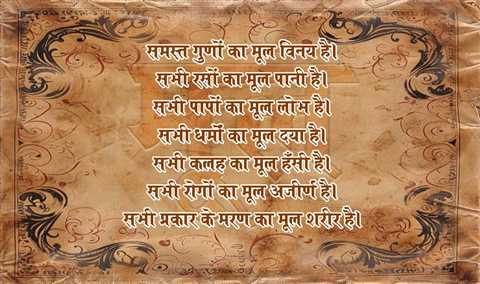 समस्त गुणों का मूल विनय है।
सभी रसों का मूल पानी है।
सभी पापों का मूल लोभ है।
सभी धर्मों का मूल दया है।
सभी कलह का मूल हँसी है।
सभी रोगों का मूल अजीर्ण है।
सभी प्रकार के मरण का मूल शरीर है।